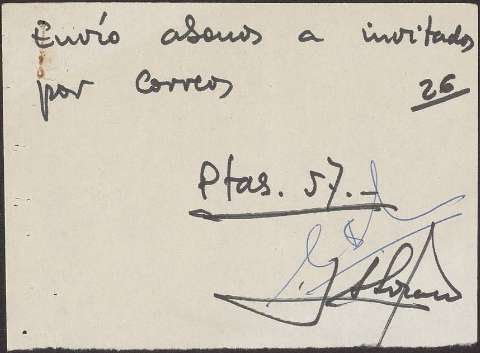 Envío abonos a invitados
por Correos 26
Ptas. 57.-